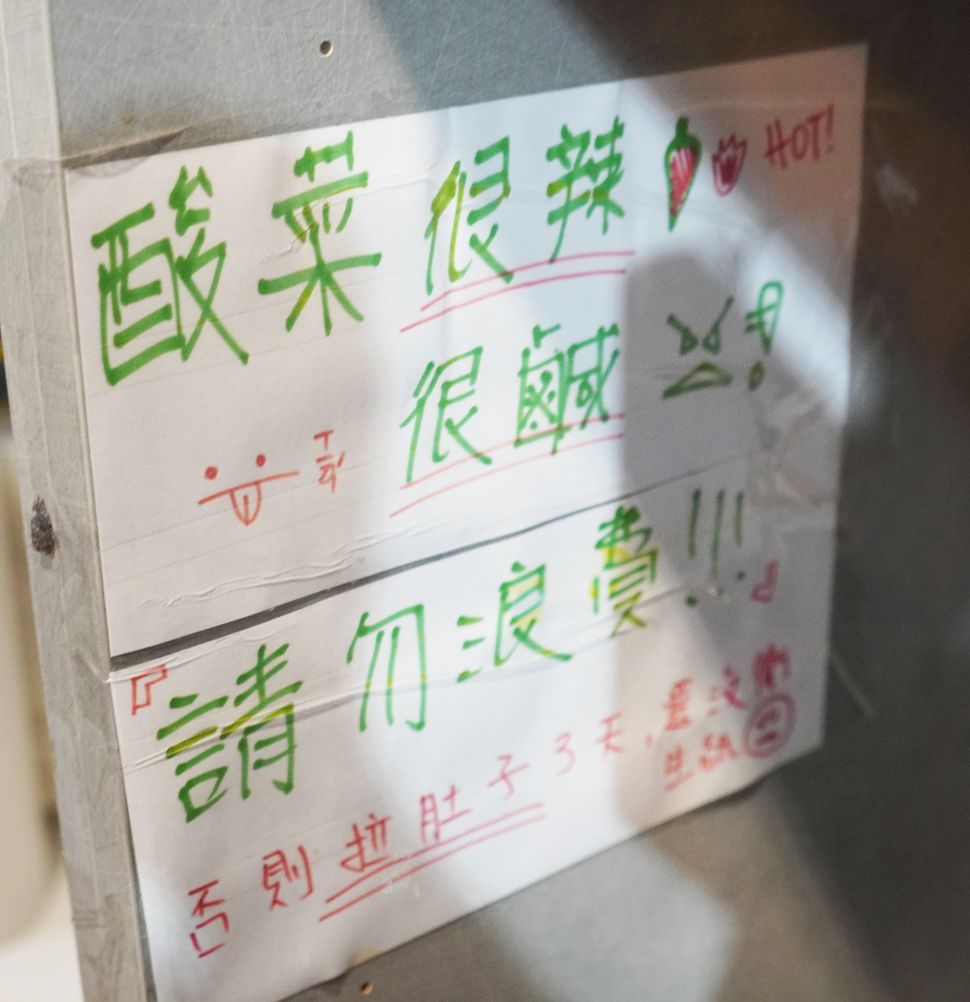 酸菜很辣 HOT!
很鹹
『請勿浪費!!!』
否則拉肚子3天,還沒衛
生紙